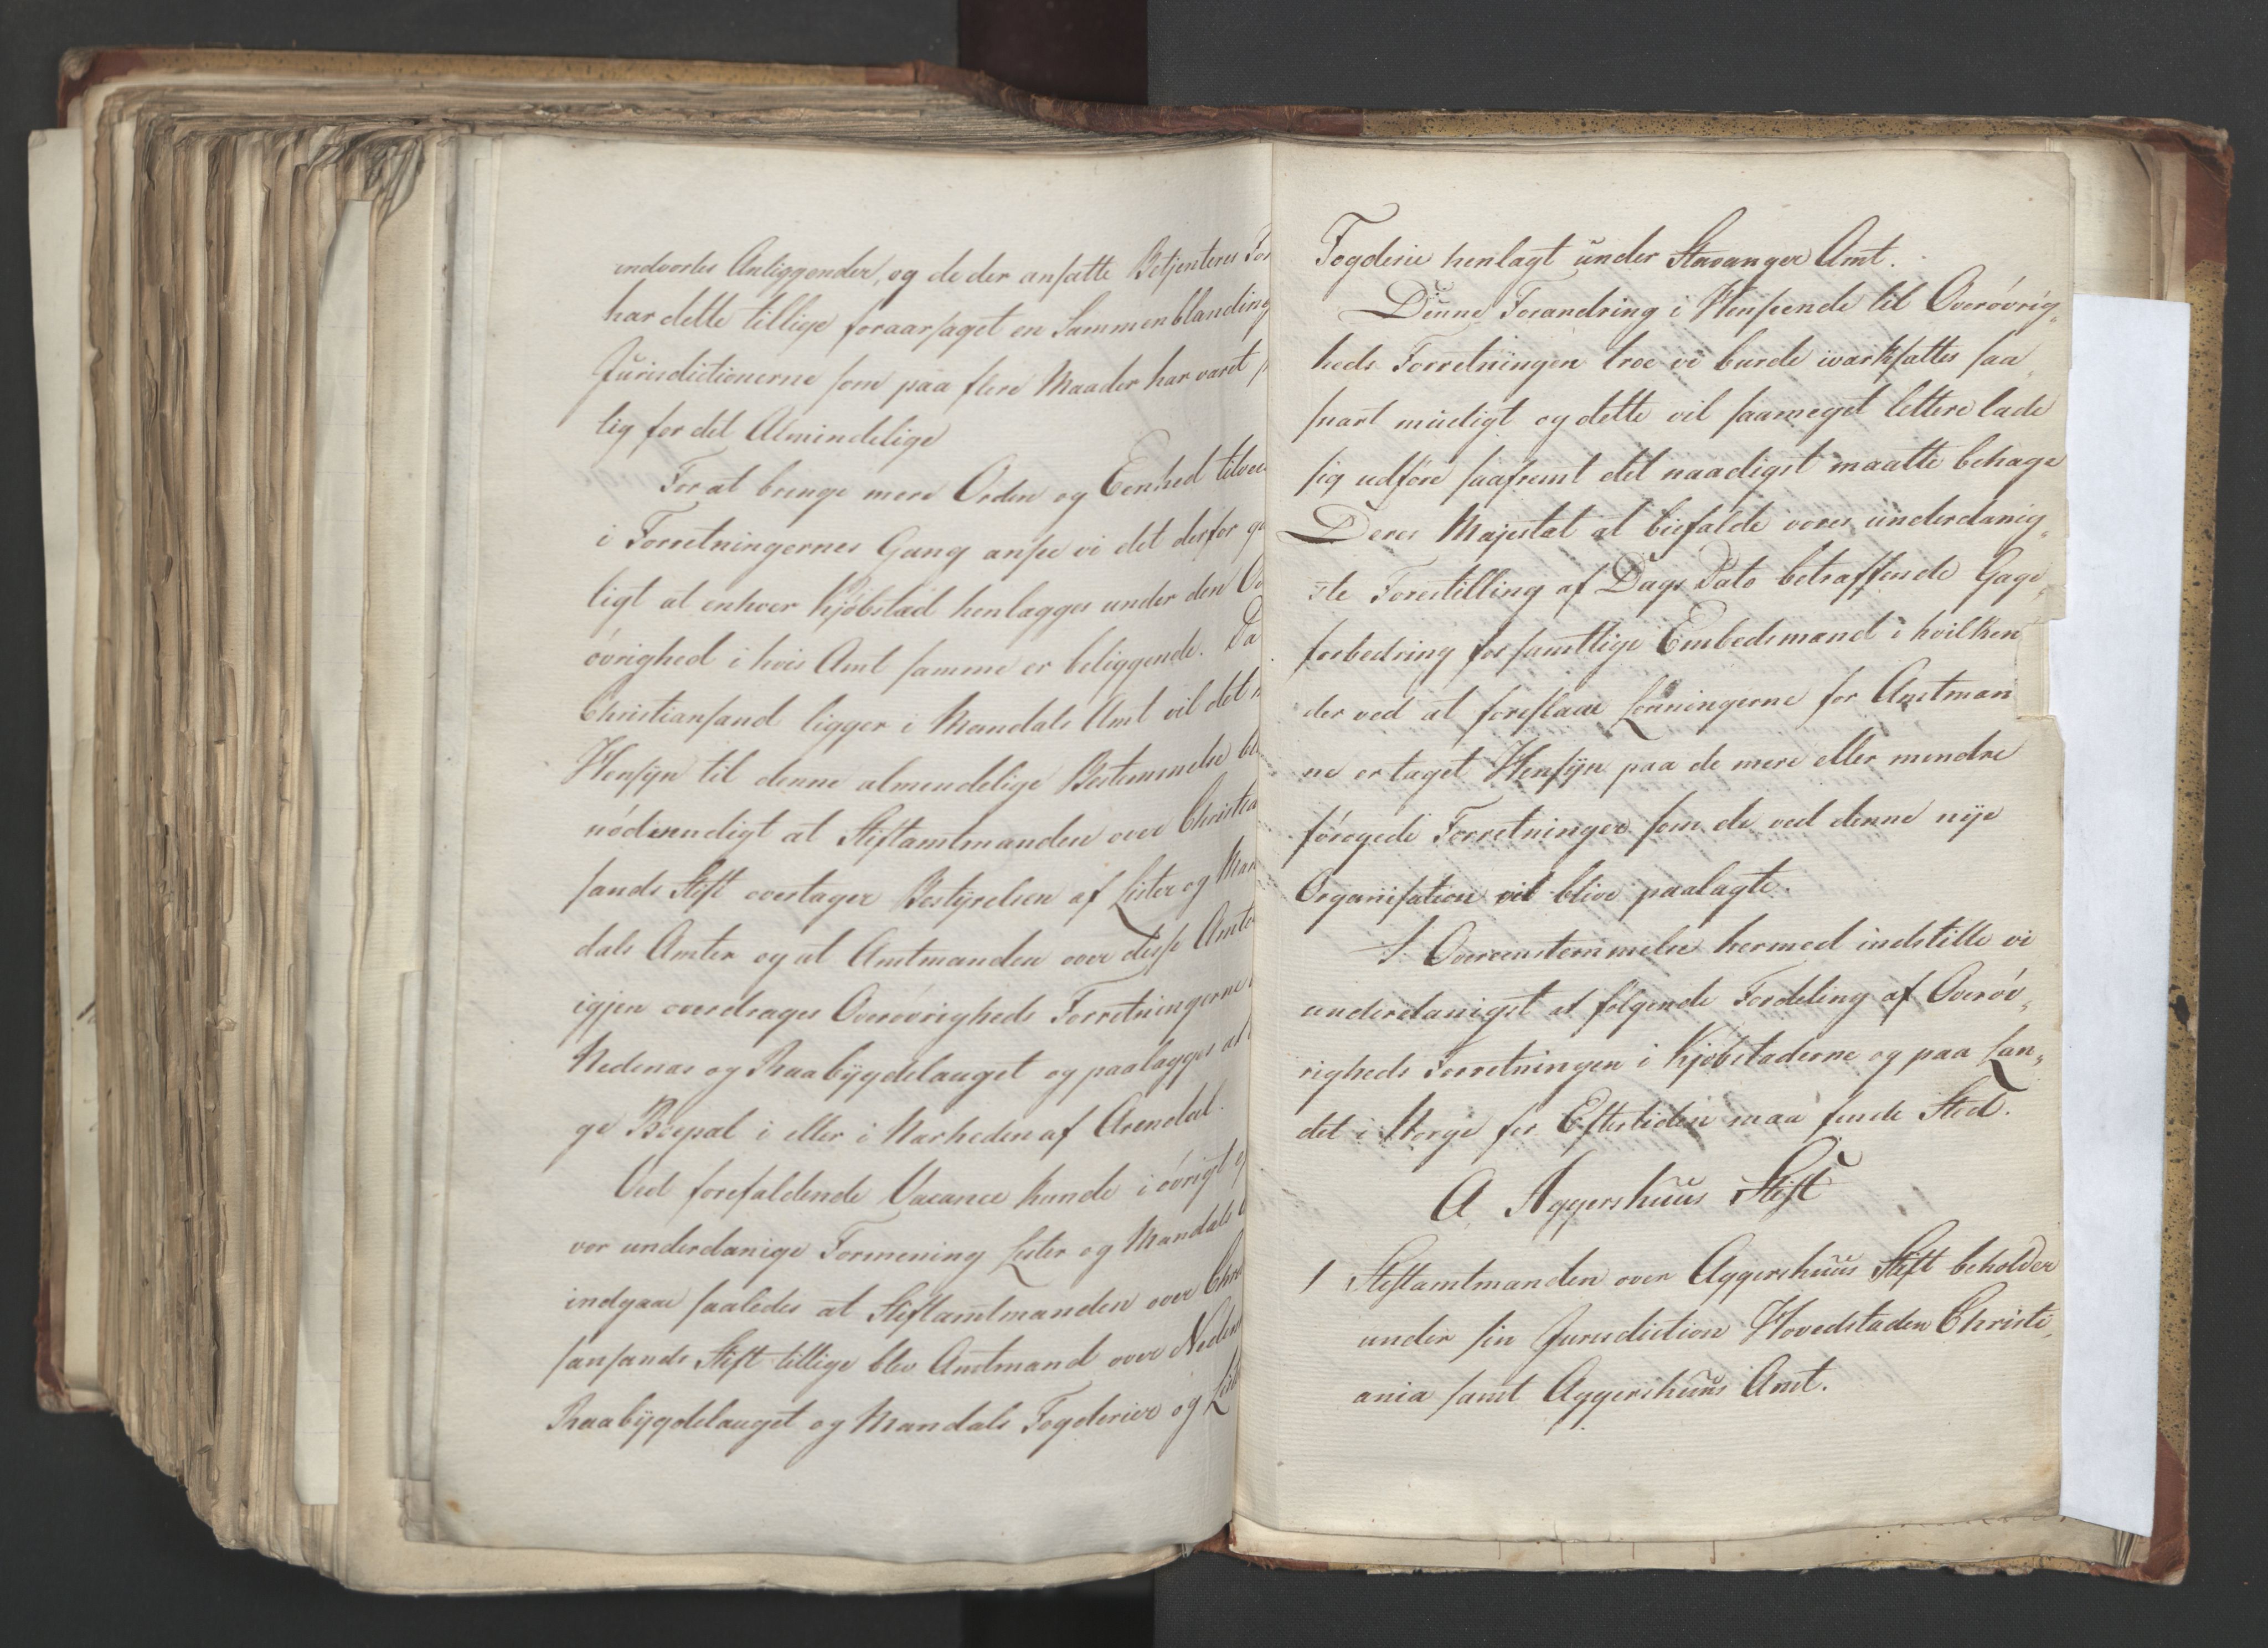 indvortes Anliggender, og de der ansatte Betjenteres For
har dette tillige foraarsaget en Sammenblanding
Jurisdictionerne som paa flere Maader har været
lig for det Almindelige
For at bringe mere Orden og Eenhed tilvee
i Forretningernes Gang ansee vi det derfor
ligt at enhver Kjöbstad henlægges under den Ov
övrighed i hvis Amt samme er beliggende. Da
Christiansand ligger i Mandals Amt vil det
Hensÿn til denne almendelige Bestemmelse bli
nödvendigt at Stiftamtmanden over Christia
sands Stift overtager Bestÿrelsen af Lister og Man
dals Amter og at Amtmanden over disse Amter
igjen overdrages Overövrigheds Forretningerne
Nedenæs og Raabÿgdelauget og paalægges at
ge Bopæl i eller i Nærheden af Arendal.
Ved forefaldende Vacance kunde i övrigt
vor underdanige Formening Lister og Mandals
indgaae saaledes at Stiftamtmanden over Chri
sansands Stift tillige blev Amtmand over Neden
Raabÿgdelauget og Mandals Fogderier og List
Fogderie henlagt under Stavanger Amt.
Denne Forandring i Henseende til Overövrig„
heds Forretningen troe vi burde iværksættes saa
snart mueligt og dette vil saameget lettere lade
sig udföre saafremt det naadigst maatte behage
Deres Majestæt at biefalde vores underdanig„
ste Forestilling af Dags Dato betræffende Gage„
forbedring for samtlige Embedsmænd i hvilken
der ved at foreslaae Lönningerne for Amtmæn
ne er taget Hensÿn paa de mere eller mindre
forögede Forretninger som de ved denne nÿe
Organisation vil blive paalagte.
I Overeenstemmelse hermed indstille vi
underdanigst at fölgende Fordeling af Overöv„
righeds Forretningen i Kjöbstæderne og paa Lan„
det i Norge for Eftertiden maa finde Sted.
A Aggershuus Stift
1 Stiftamtmanden over Aggershuus Stift beholder
under sin Jurisdiction Hovedstaden Christi„
ania samt Aggershuus Amt.